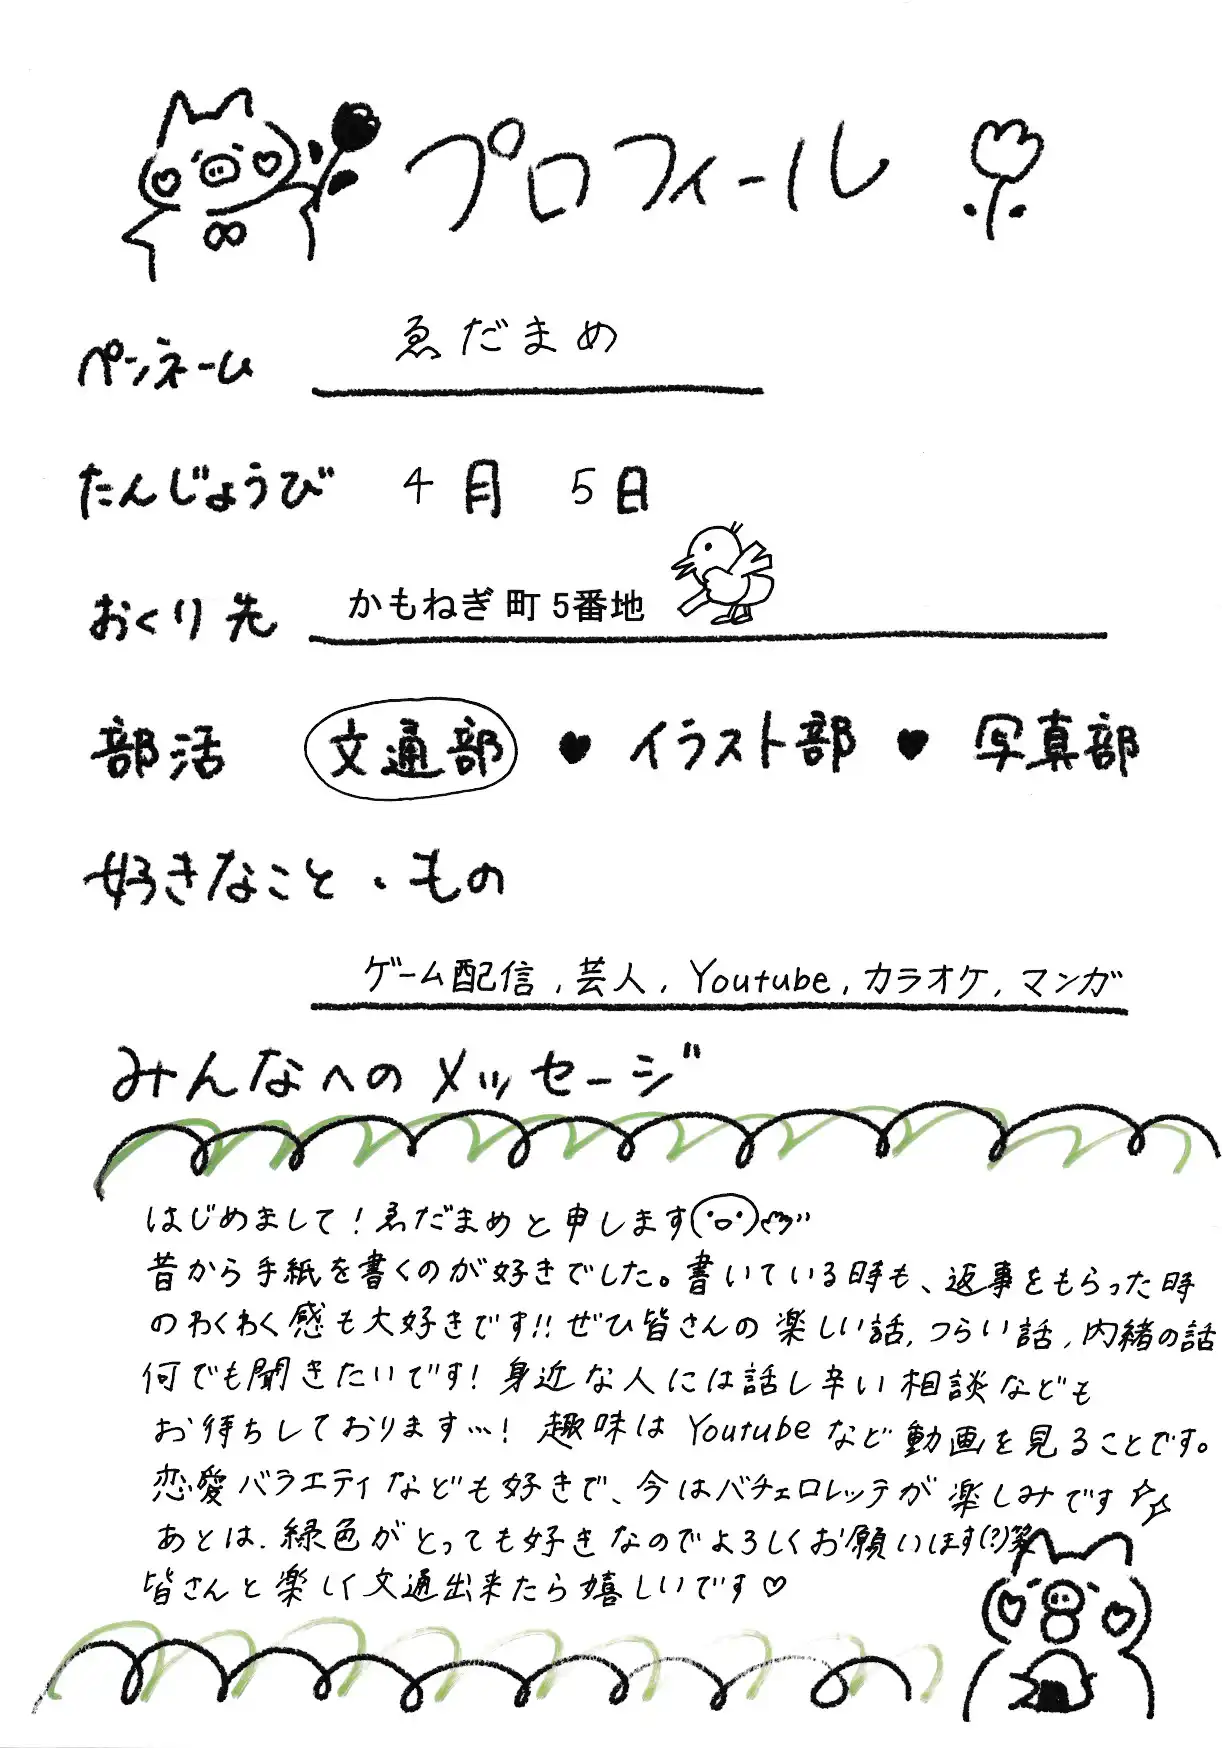 プロフィール
ペンネーム ゑだまめ
たんじょうび 4月 5日
おくり先 かもねぎ町 5番地
部活 文通部 ♥ イラスト部 ♥ 写真部
好きなこと・もの
ゲーム配信, 芸人, Youtube, カラオケ, マンガ
みんなへのメッセージ
はじめまして!ゑだまめと申します
昔から手紙を書くのが好きでした。書いている時も、返事をもらった時
のわくわく感も大好きです!!ぜひ皆さんの楽しい話, つらい話, 内緒の話
何でも聞きたいです!身近な人には話し辛い相談なども
お待ちしております…!趣味はYoutubeなど動画を見ることです。
恋愛バラエティなども好きで、今はバチェロレッテが楽しみです☆☆
あとは、緑色がとっても好きなのでよろしくお願いします(?)笑
皆さんと楽しく文通出来たら嬉しいです♡